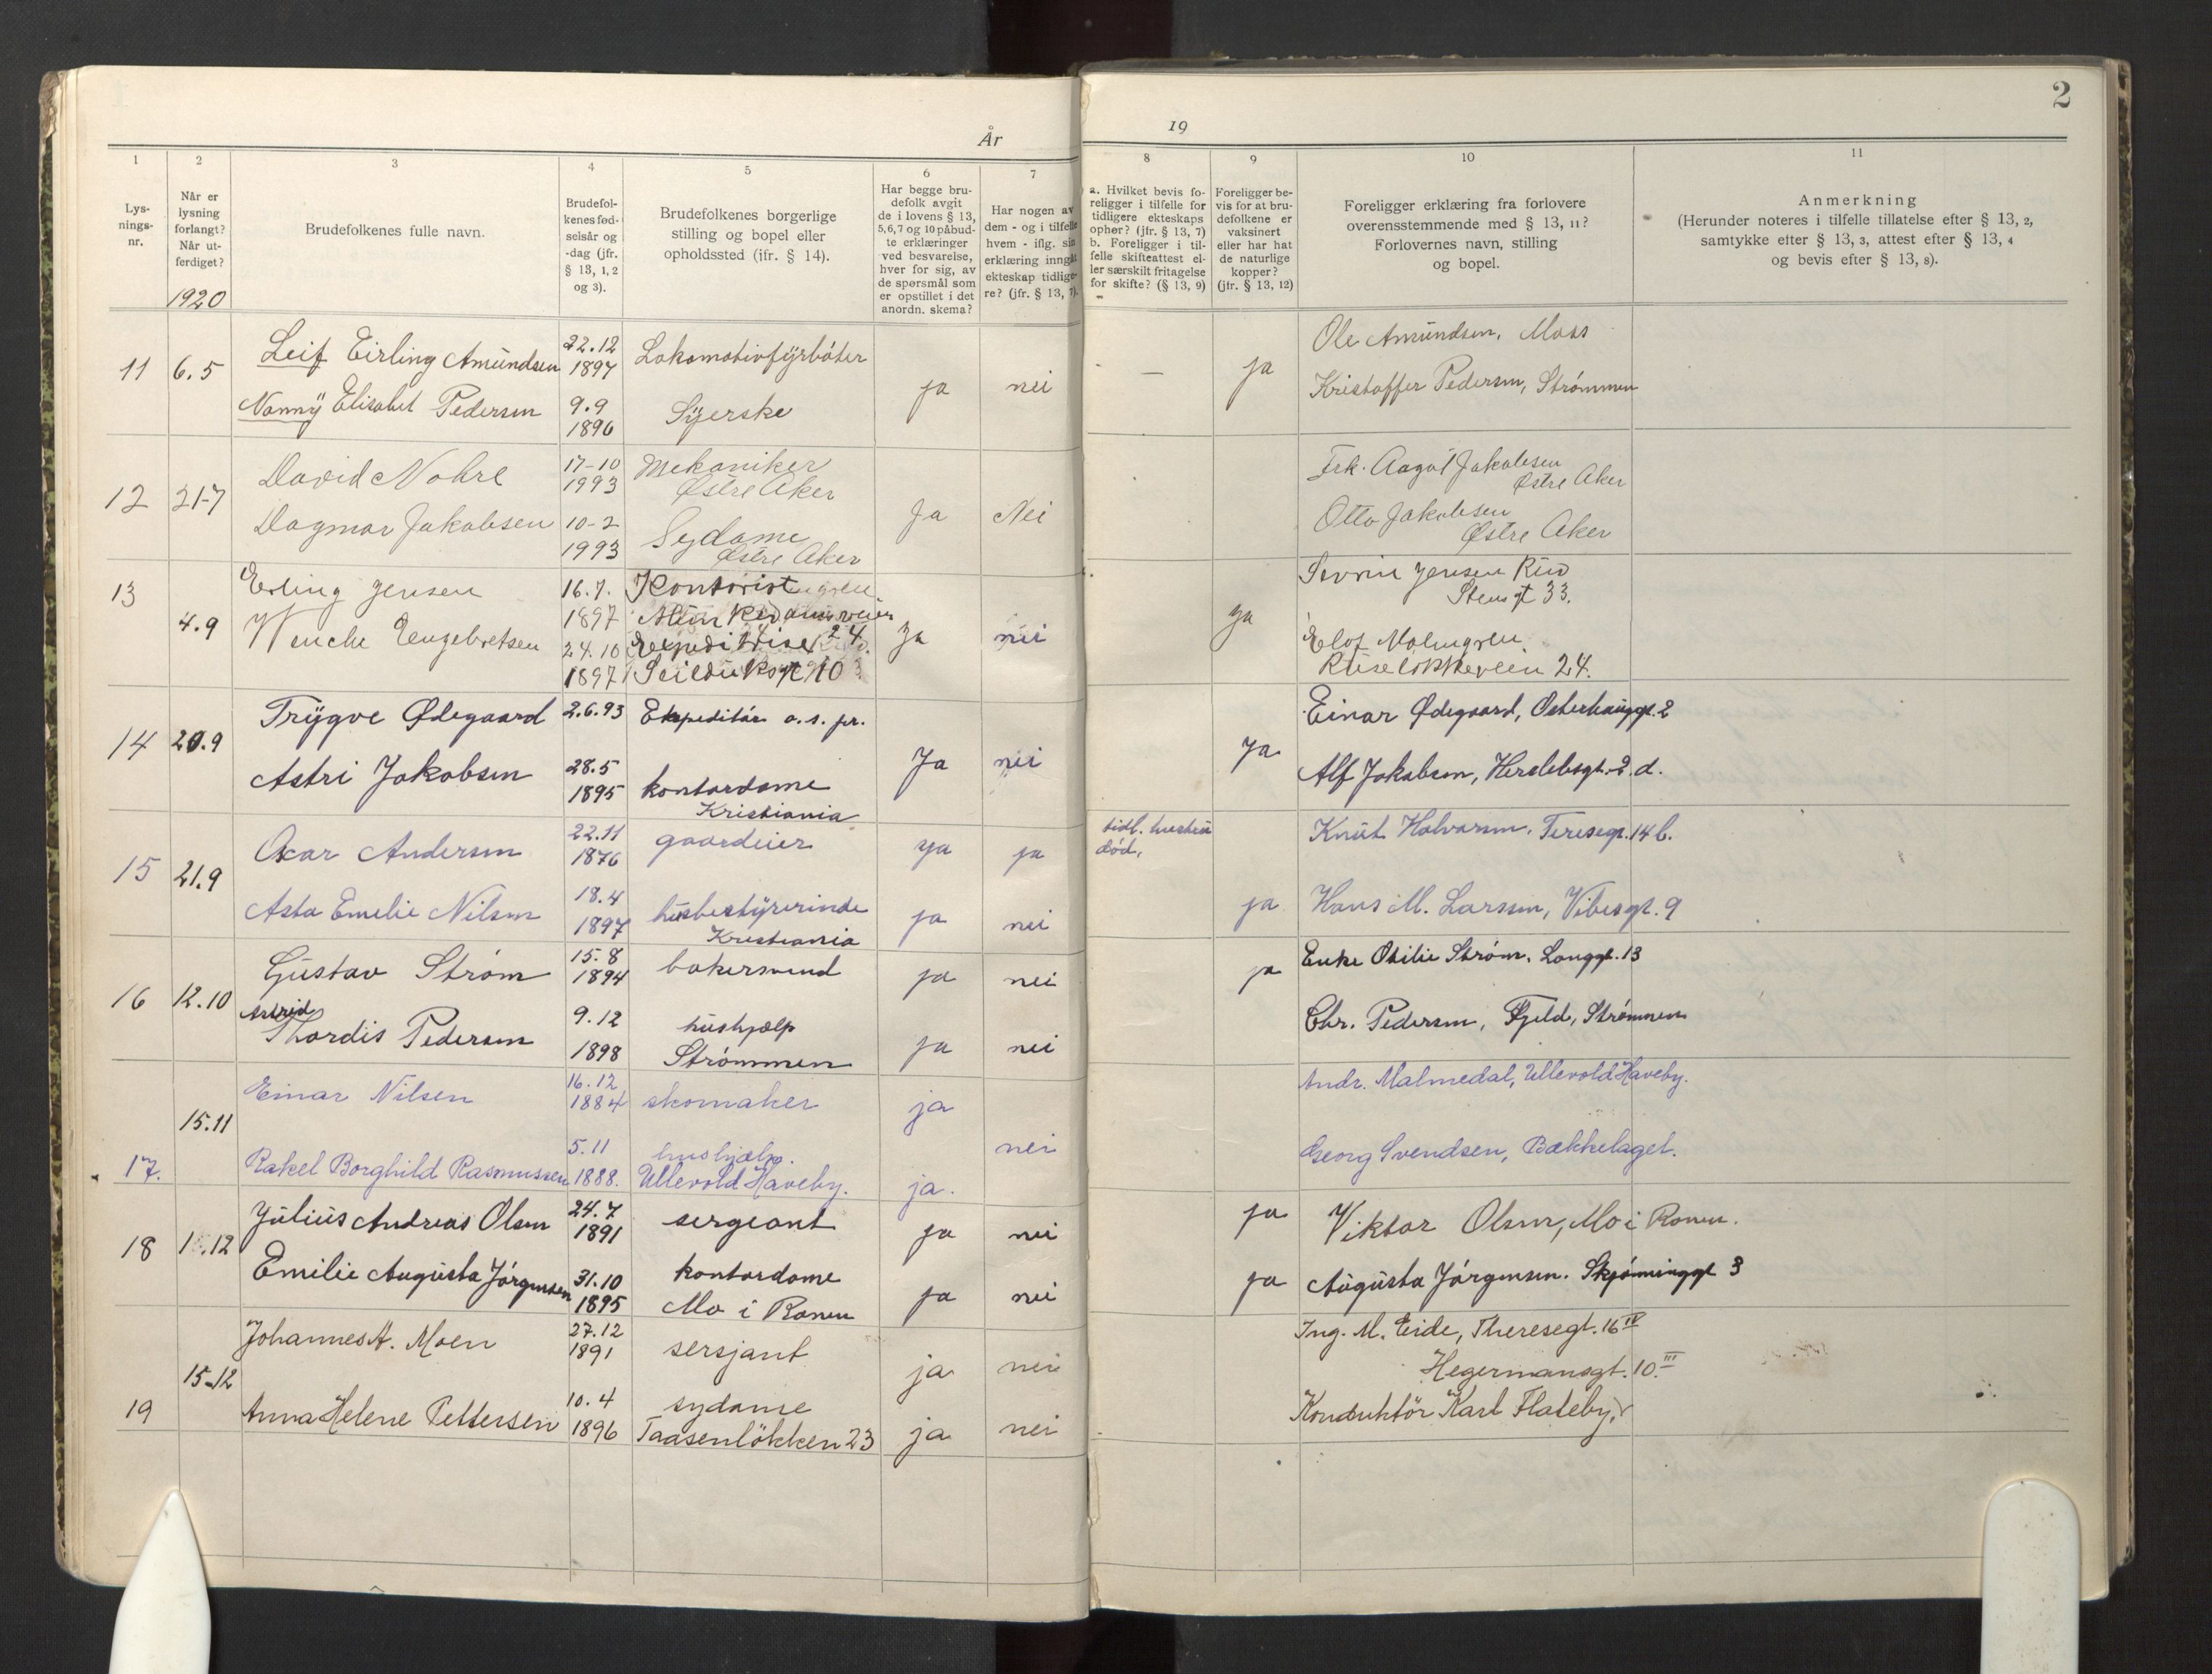 2
År
19
1
2
3
4
5
6
7
8
9
10
11
Lys-
nings-
nr.
Når er
lysning
forlangt?
Når ut-
ferdiget?
1920
Brudefolkenes fulle navn.
Brudefol-
kenes fød-
selsår og
-dag (jfr.
§ 13, 1, 2
og 3).
Brudefolkenes borgerlige
stilling og bopel eller
opholdssted (jfr. § 14).
Har begge bru-
defolk avgit
de i lovens § 13,
5, 6, 7 og 10 påbud-
te erklæringer
ved besvarelse,
hver for sig, av
de spørsmål som
er opstillet i det
anordn. skema?
Har nogen av
dem - og i tilfelle
hvem - iflg. sin
erklæring inngåt
ekteskap tidlige-
re? (jfr. § 13, 7).
a. Hvilket bevis fo-
religger i tilfelle for
tidligere ekteskaps
ophør? (jfr. § 13, 7)
b. Foreligger i til-
felle skifteattest el-
ler særskilt fritagelse
for skifte? (§ 13, 9)
Foreligger be-
vis for at bru-
defolkene er
vaksinert
eller har hat
de naturlige
kopper?
(jfr. § 13, 12)
Foreligger erklæring fra forlovere
overensstemmende med § 13, 11?
Forlovernes navn, stilling
og bopel.
Anmerkning
(Herunder noteres i tilfelle tillatelse efter § 13, 2,
samtykke efter § 13, 3, attest efter § 13, 4
og bevis efter § 13, 8).
11 6.5 Leif Eirling Amundsen 22.12 1897 Lokomotivfyrbøter ja nei — ja Ole Amundsen, Moss
Nanny Elisabet Pedersen 9.9 1896 Syerske Kristoffer Pedersen, Strømmen
12 21-7 David Nohre 17-10 1993 Mekaniker Østre Aker Ja Nei Frk. Aagot Jakobsen Østre Aker
Dagmar Jakobsen 10-2 1993 Sydame Østre Aker Otto Jakobsen Østre Aker
13 4.9 Erling Jensen 16.7. 1897 Kontorist ja nei ja Jensen
Stensgt 33.
Wenche Engebretsen 24.10 1897 24. Seilduksgt 10 Elof Malmgren
Ruseløkkeveien 24.
14 20.9 Trygve Ødegaard 2.6.93 Ekspeditør o.s.pr. Ja nei Ja Einar Ødegaard, Osterhausgt. 2
Astri Jakobsen 28.5 1895 kontordame Kristiania Alf Jakobsen, Herslebsgt. 2 d.
15 21.9 Oscar Andersen 22.11 1876 gaardeier ja ja tidl. hustru død, Knut Halvorsen, Teresegt. 14 b.
Asta Emelie Nilsen 18.4 1897 husbestyrerinde Kristiania ja nei ja Hans M. Larssen, Vibesgt. 9
16 12.10 Gustav Strøm 15.8 1894 bakersvend ja nei ja Enke Otilie Strøm, Langgt. 13
Astrid
Thordis Pedersen 9.12 1898 hushjælp Strømmen ja nei Chr. Pedersen, Fjeld, Strømmen
17. 15.11 Einar Nilsen 16.12 1884 skomaker ja nei Andr. Malmedal, Ullevold Haveby.
Rakel Borghild Rasmussen 5.11 1888. hushjælp. Ullevold Haveby. ja. Georg Svendsen, Bækkelaget.
18 12 Julius Andreas Olsen 24.7 1891 sergeant ja nei ja Viktor Olsen, Mo i Ranen.
Emilie Augusta Jørgensen 31.10 1895 kontordame Mo i Ranen ja nei ja Augusta Jørgensen. Skjønninggt 3
19 15-12 Johannes A. Moen 27.12 1891 sersjant ja nei Ing. M. Eide, Theresegt. 16 IV
Hegermansgt. 10. III
Anna Helene Pettersen 10.4 1896 sydame Taasenløkken 23 ja nei Konduktør Karl Flateby,